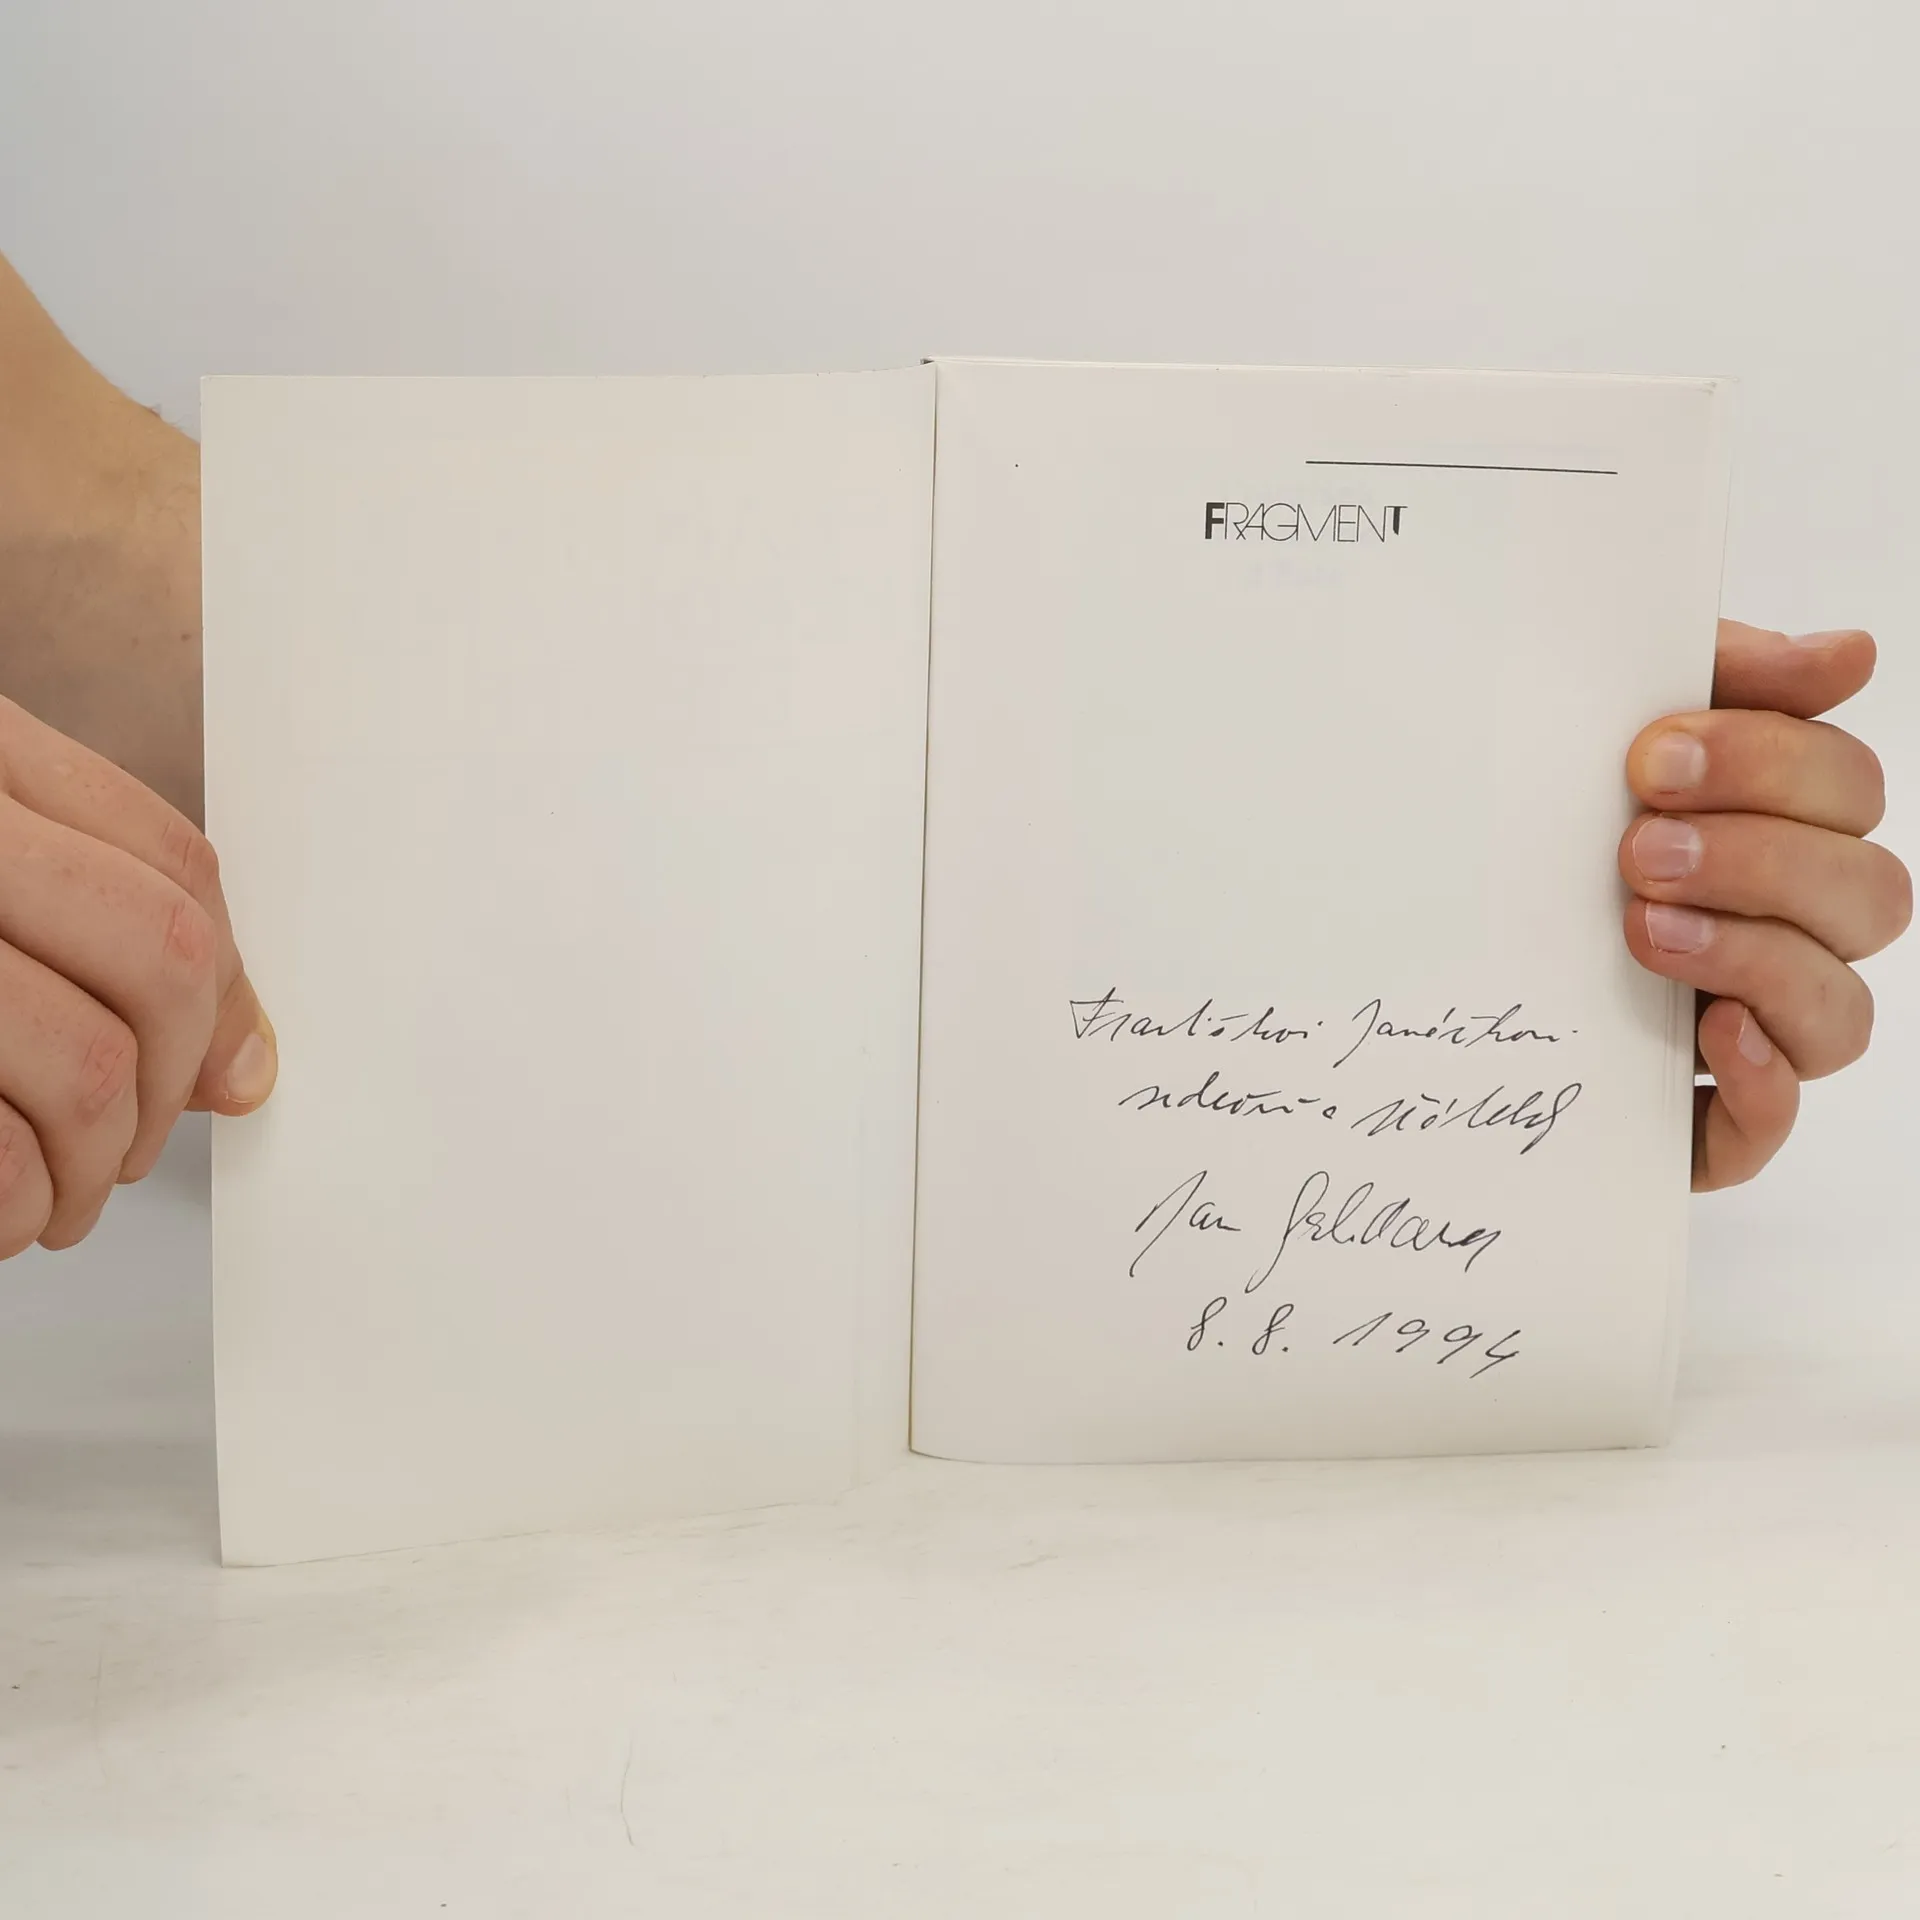 FRAGMENT
Františkovi Janáčkovi
srdečně a přátelsky
Jan
8. 8. 1994